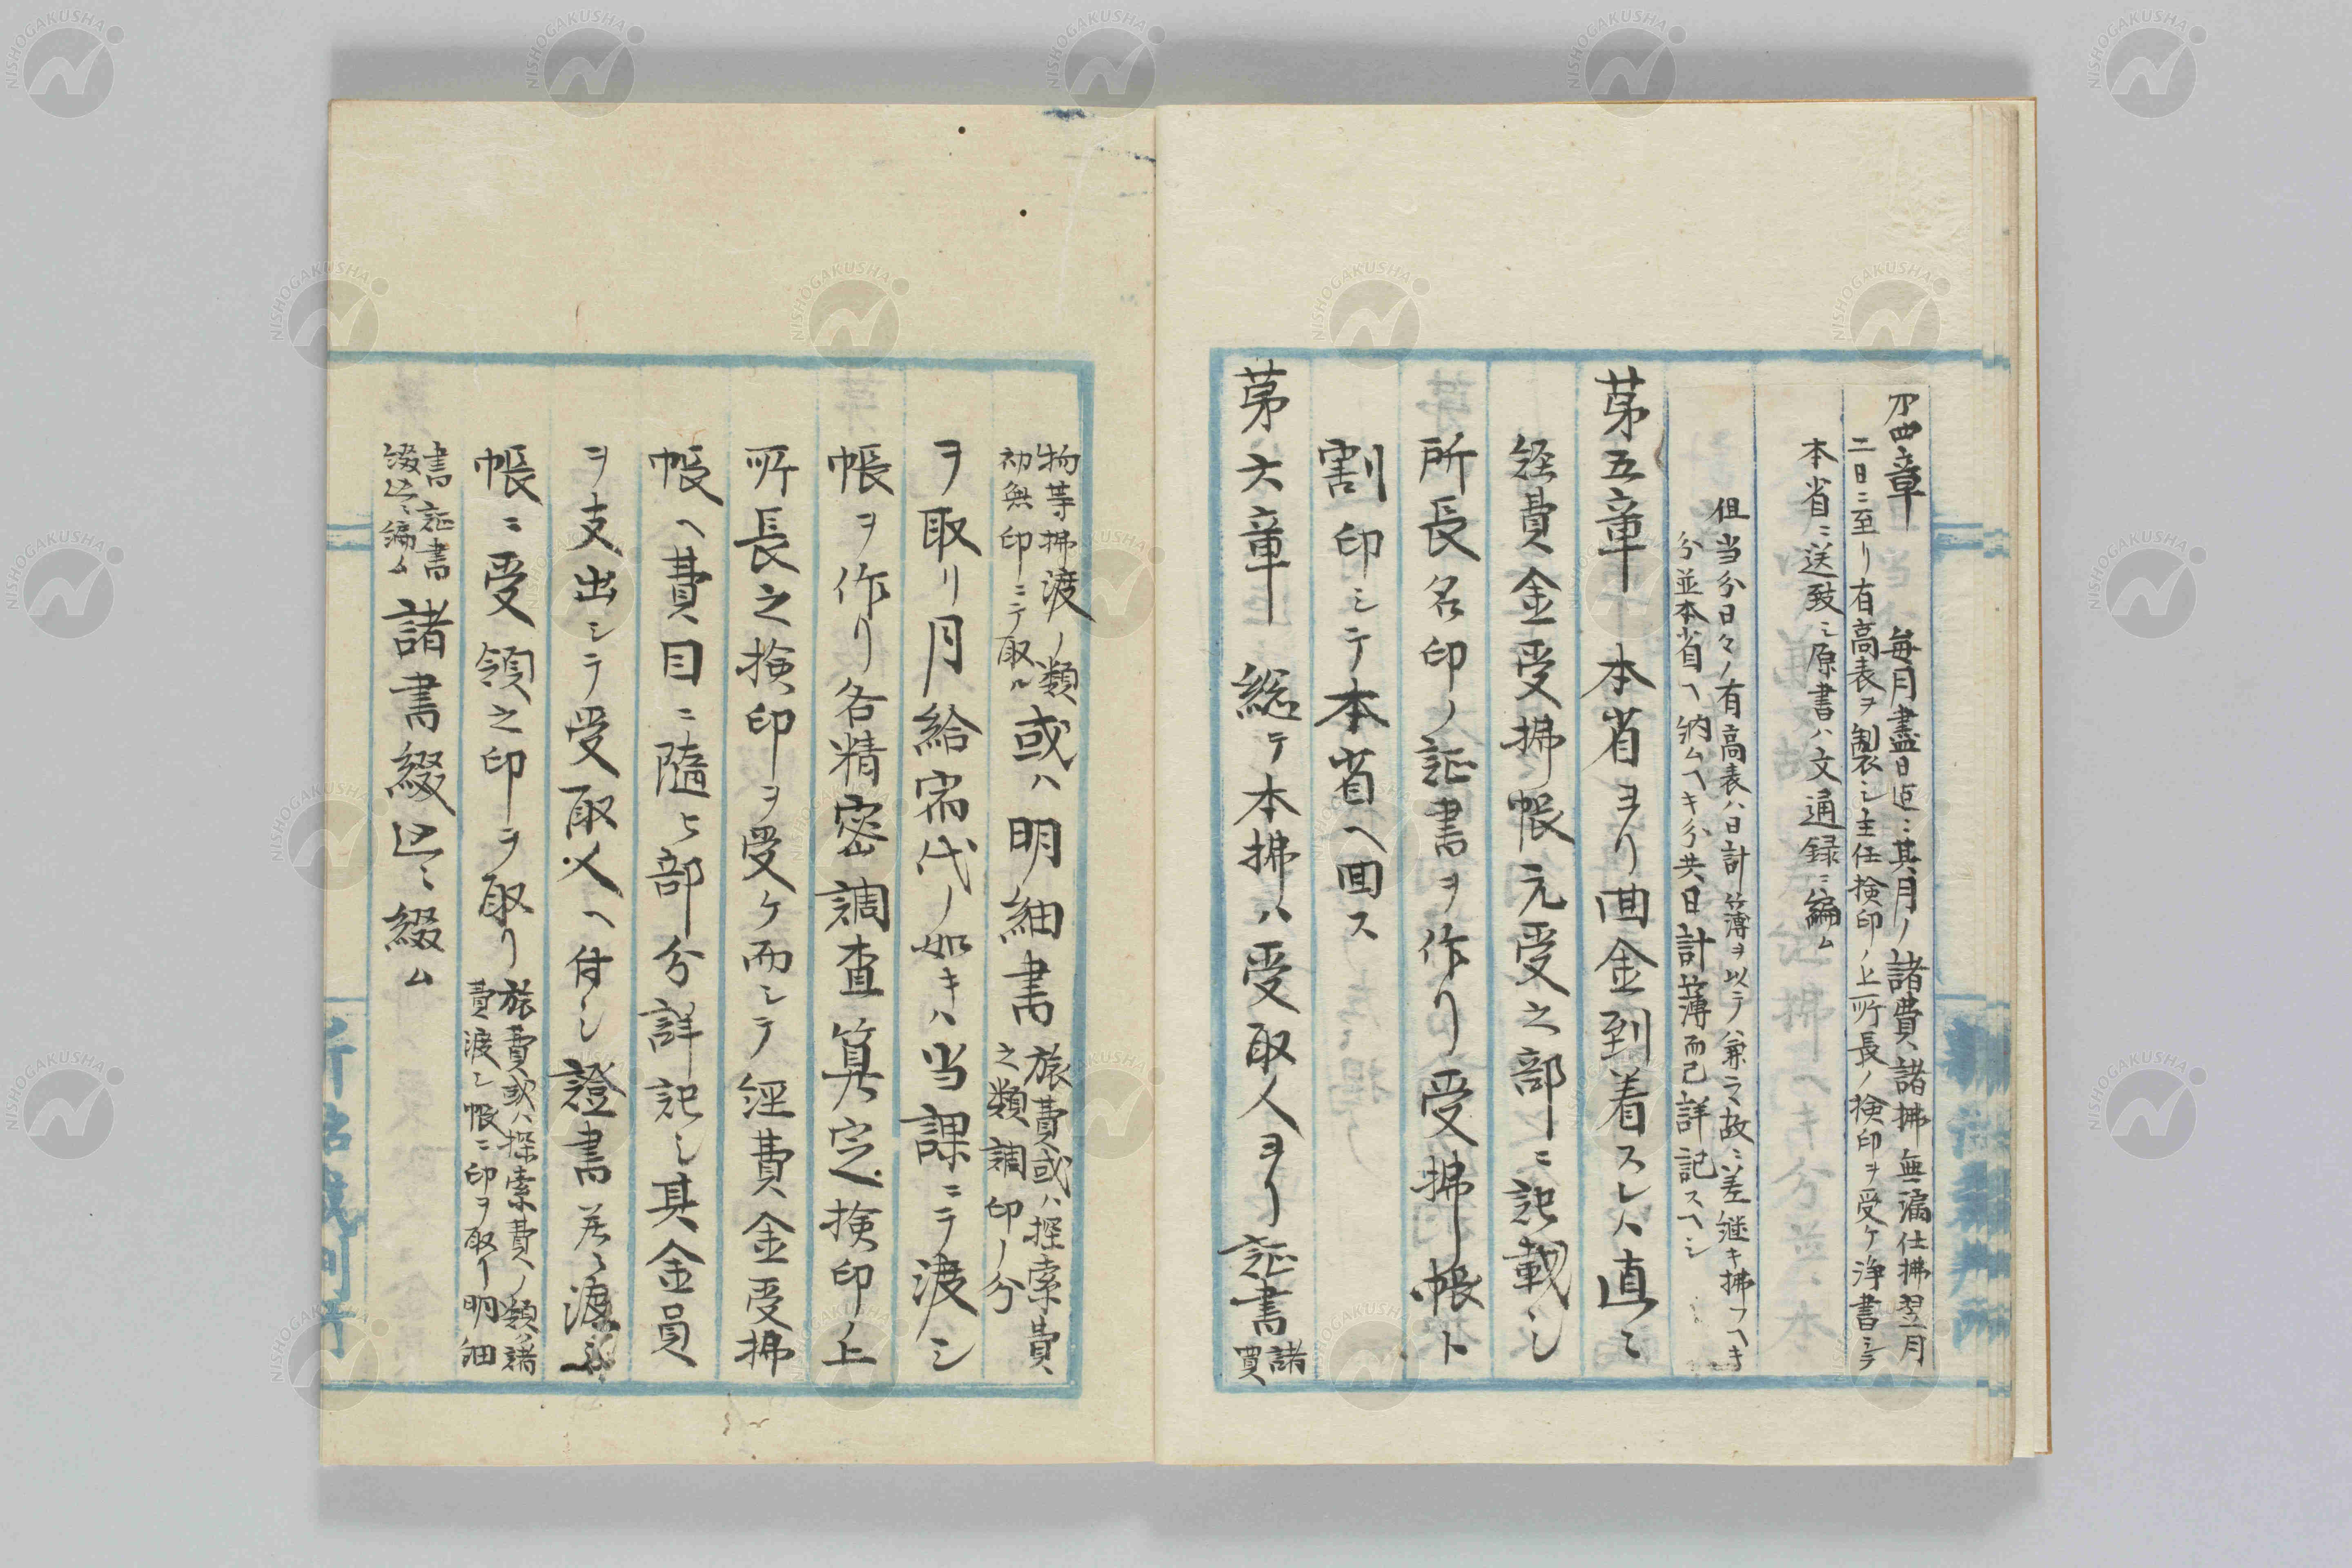 第四章 毎月盡日迄ニ其月ノ諸費諸拂無漏仕拂翌月
二日ニ至リ有高表ヲ製シ主任検印ノ上所長ノ検印ヲ受ケ浄書シテ
本省ニ送致シ原書ハ文通録ニ編ム
但当分日々ノ有高表ハ日計簿ヲ以テ兼ラ故ニ差継キ拂フヘキ
分並本省ヘ納ムヘキ分共日計簿而已詳記スヘシ
第五章 本省ヨリ回金到着スレハ直ニ
経費金受拂帳元受之部ニ記載シ
所長名印ノ証書ヲ作リ受拂帳ト
割印シテ本省ヘ回ス
第六章 総テ本拂ハ受取人ヨリ証書諸買
物等拂渡ノ類
初無印ニテ取ル
或ハ明細書
旅費或ハ探索費
之類調印ノ分
ヲ取リ月給宿代ノ如キハ当課ニテ渡シ
帳ヲ作リ各精密調査算定検印ノ上
所長之検印ヲ受ケ而シテ経費金受拂
帳ヘ費目ニ随ヒ部分詳記シ其金員
ヲ支出シテ受取人ヘ付シ證書差シ渡
帳ニ受領之印ヲ取リ
旅費或ハ探索費ノ類ハ諸
費渡シ帳ニ印ヲ取リ明細
書証書
綴込ニ編ム
諸書綴込ニ綴ム
NISHOGAKUSHA